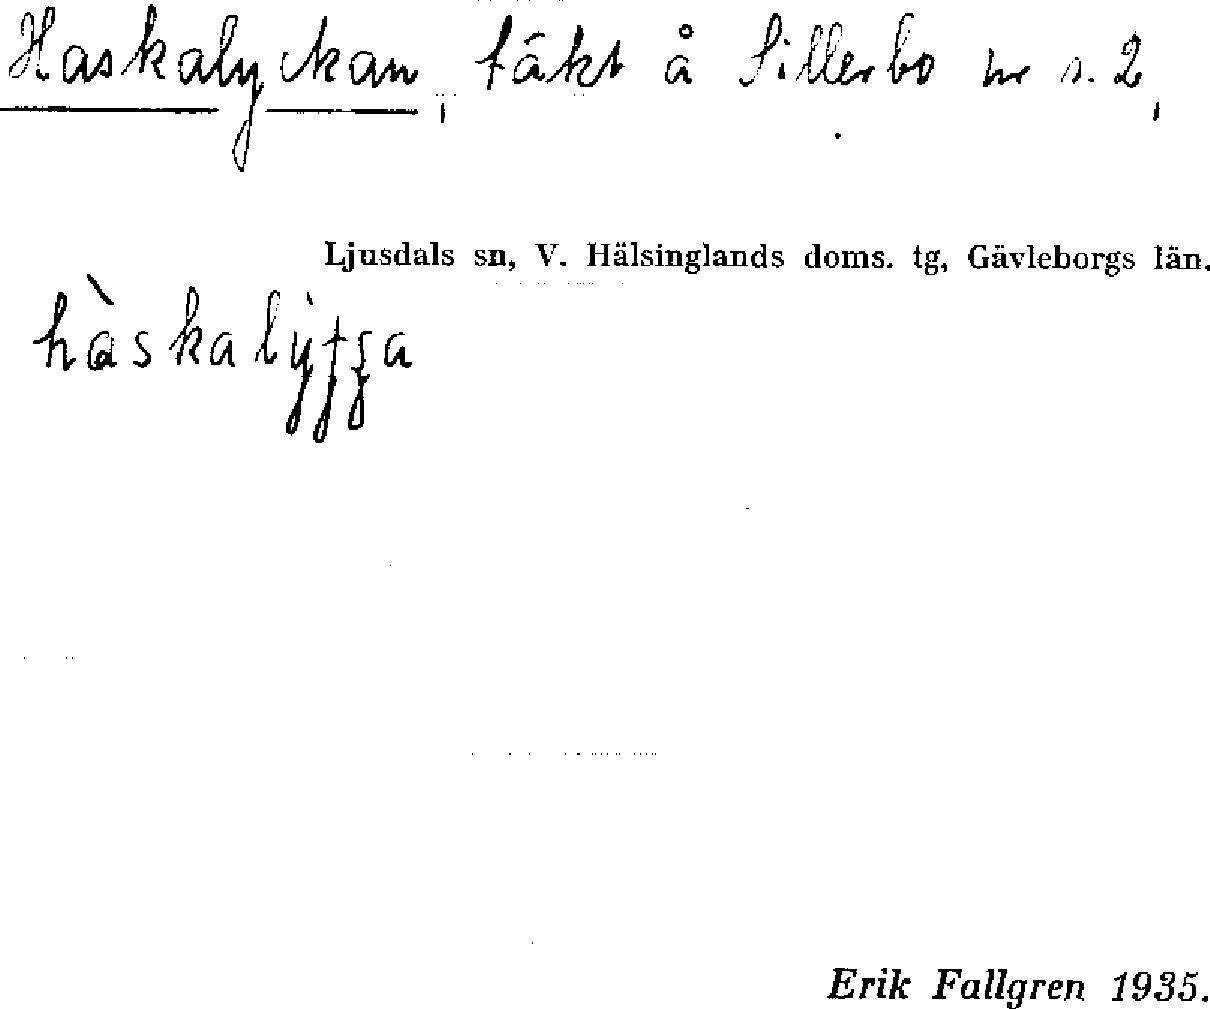 Haskalyckan, täkt å Sillerbo nr s. 2,
Ljusdals sn, V. Hälsinglands doms. tg, Gävleborgs län.
Erik Fallgren 1935.